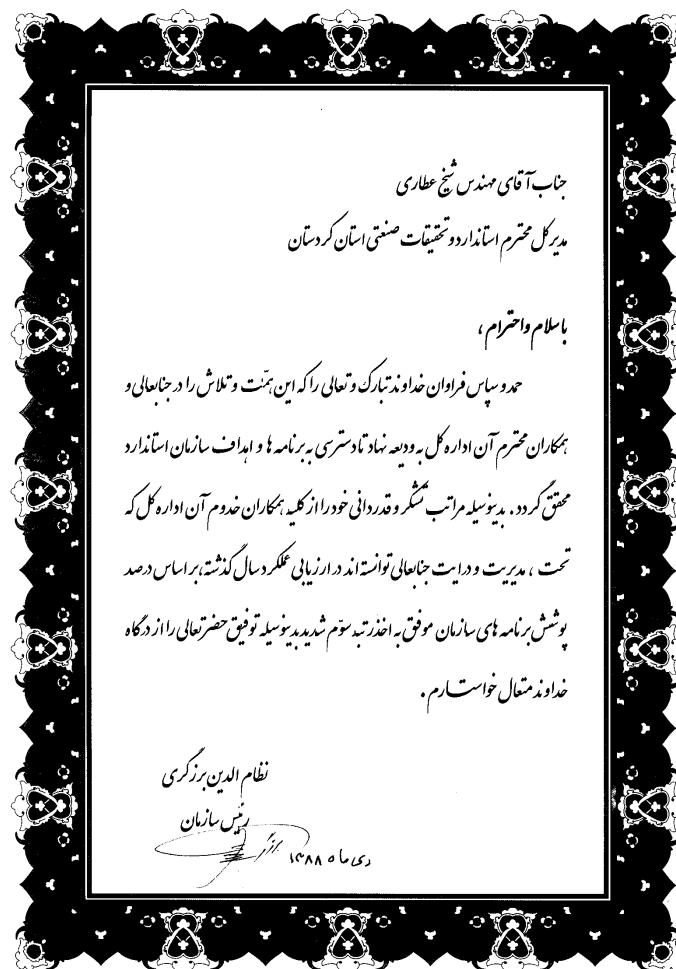 جناب آقای مهندس شیخ عطاری
مدیر کل محترم استاندارد و تحقیقات صنعتی استان کردستان
باسلام واحترام ،
حمد و سپاس فراوان خداوند تبارک و تعالی را که این همّت و تلاش را در جنابعالی و
همکاران محترم آن اداره کل به ودیعه نهاد تا دسترسی به برنامه ها و اهداف سازمان استاندارد
محقق گردد . بدینوسیله مراتب تشکر و قدردانی خود را از کلیه همکاران خدوم آن اداره کل که
تحت ، مدیریت و درایت جنابعالی توانسته اند در ارزیابی عملکرد سال گذشته، بر اساس درصد
پوشش برنامه های سازمان موفق به اخذ رتبه سوّم شدید بدینوسیله توفیق حضرتعالی را از درگاه
خداوند متعال خواستارم .
نظام الدین برزگری
رئیس سازمان
دی ماه ۱۳۸۸